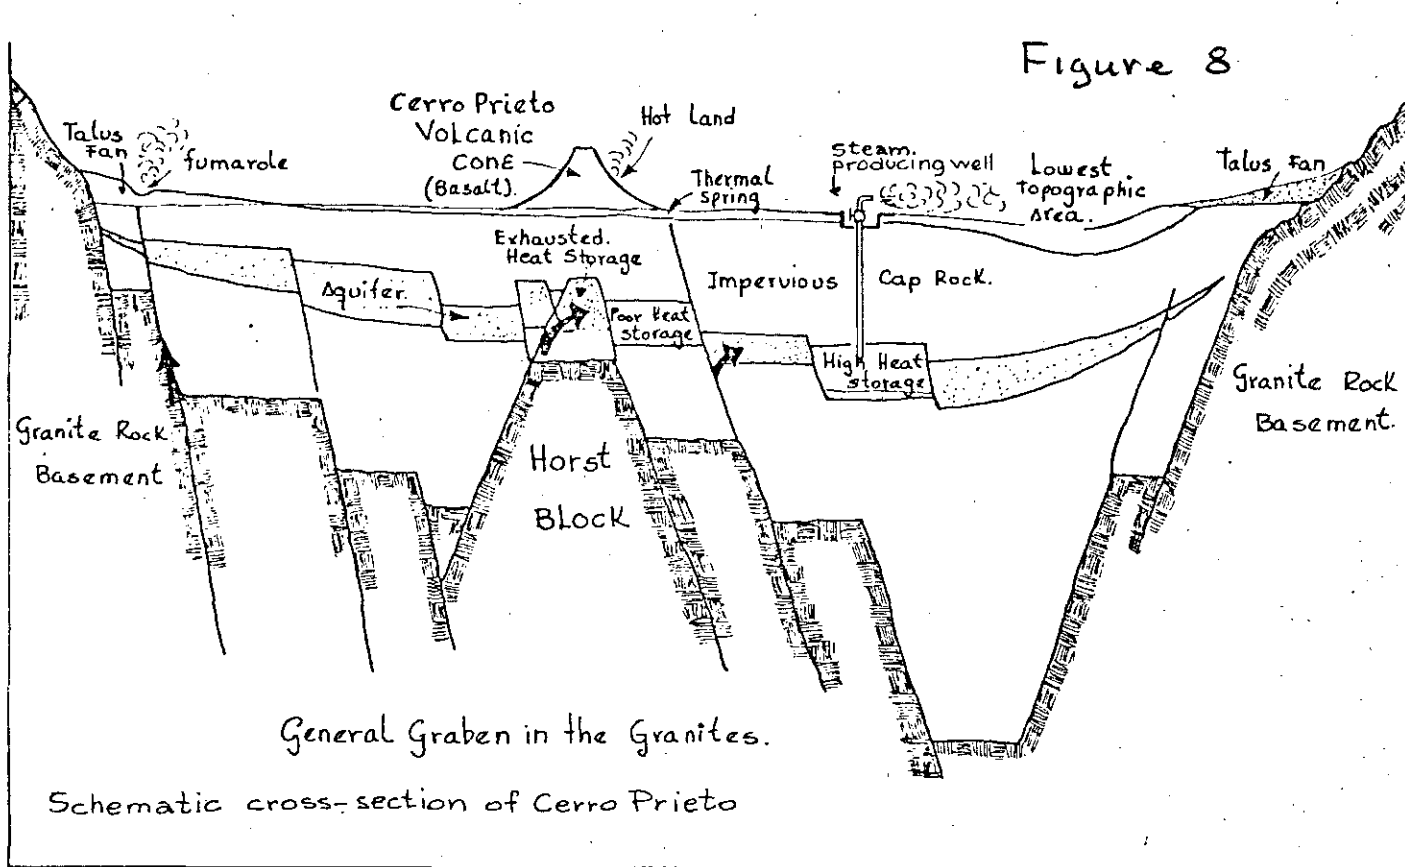 Figure 8
Talus
Fan
fumarole
Cerro Prieto
Volcanic
Cone
(Basalt).
Hot Land
Thermal
spring
Steam.
producing well
Lowest
topographic
area.
Talus Fan
Exhausted.
Heat Storage
Aquifer.
Poor Heat
storage
Impervious
Cap Rock.
High Heat
storage
Granite Rock
Basement
Horst
Block
Granite Rock
Basement.
General Graben in the Granites.
Schematic cross-section of Cerro Prieto